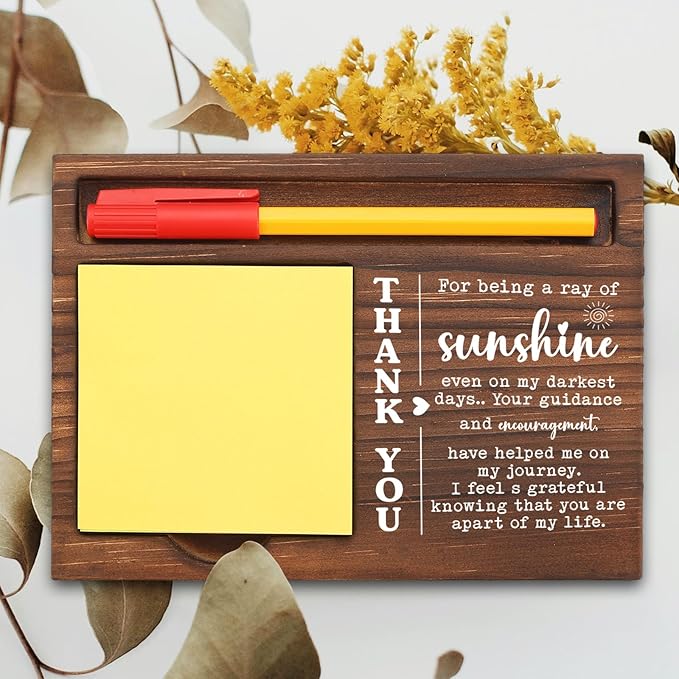 THANK YOU
For being a ray of
sunshine
even on my darkest
days.. Your guidance
and encouragement,
have helped me on
my journey.
I feel s grateful
knowing that you are
apart of my life.